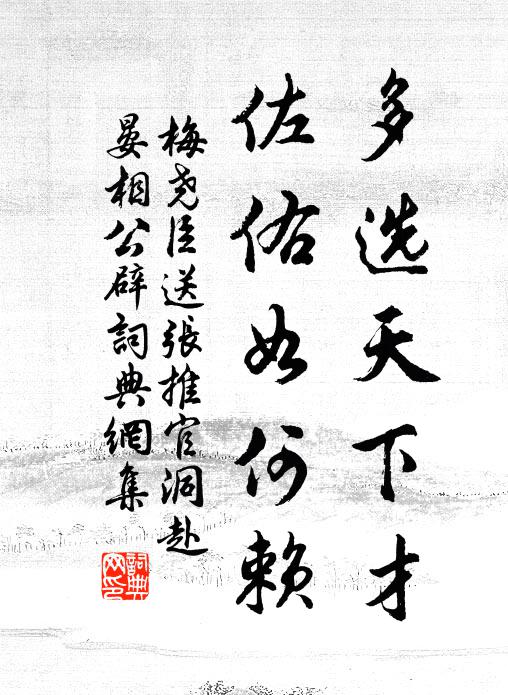 多选天下才
佐佑如何赖
梅尧臣送張推官洞赴
晏相公辟詞典網集
詞典网印